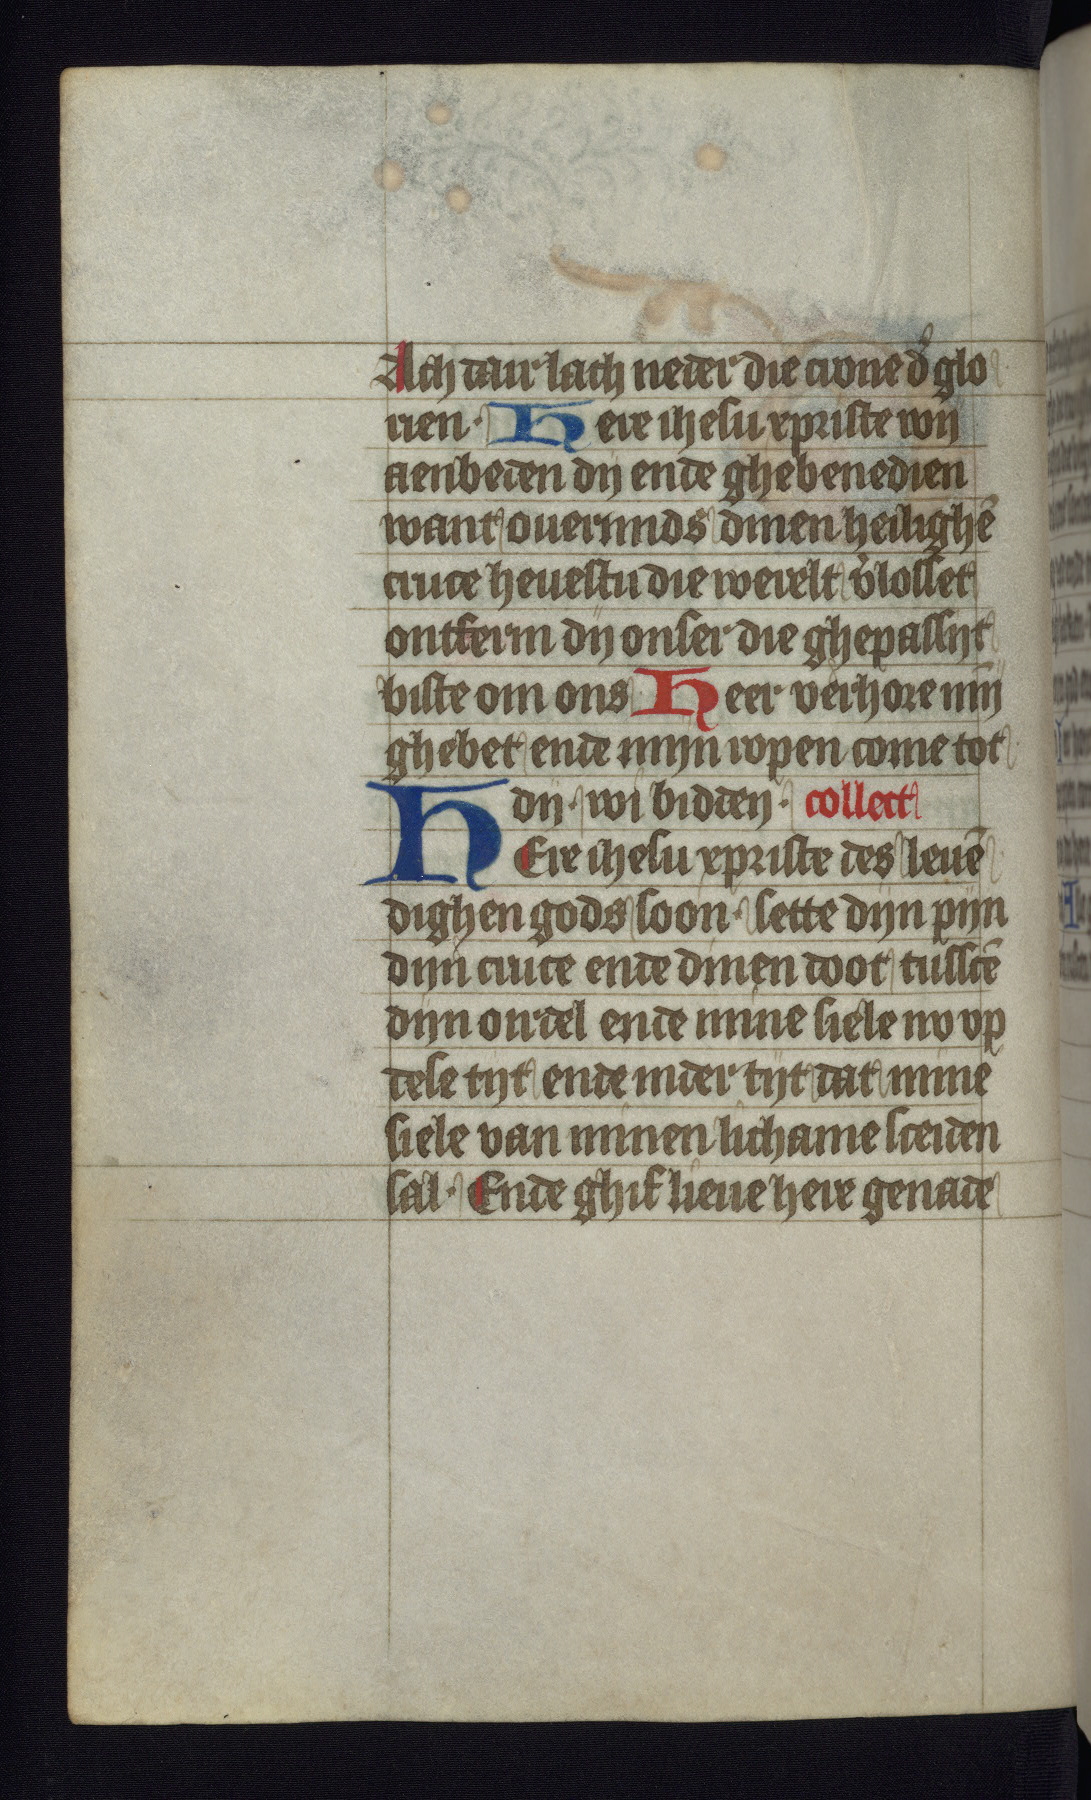 Ach daer lach neder die crone d'glo
rien· Here ihesu xpriste wij
aenbeden dij ende ghebenedien
want ouermids dinen heilighē
cruce heuestu die werelt v'losset
ontferm dij onser die ghepassijt
biste om ons Heer verhore mijn
ghebet ende mijn ropen come tot
dij· wi bidden· collect
HEre ihesu xpriste des leuē
dighen gods soon· sette dijn pijn
dijn cruce ende dinen doot tusscē
dijn ordel ende mine siele nv vp
dese tijt ende inder tijt dat mine
siele van minen lichame sceiden
sal· Ende ghif lieue here genade